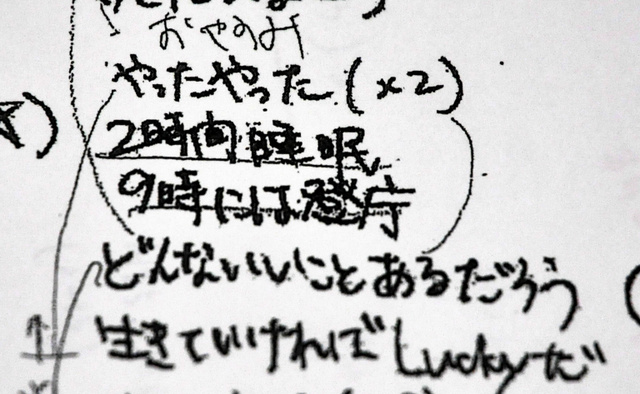 おやすみ
やったやった (×2)
2時間睡眠
9時には登庁
どんないいことあるだろう
生きていければLuckyだ